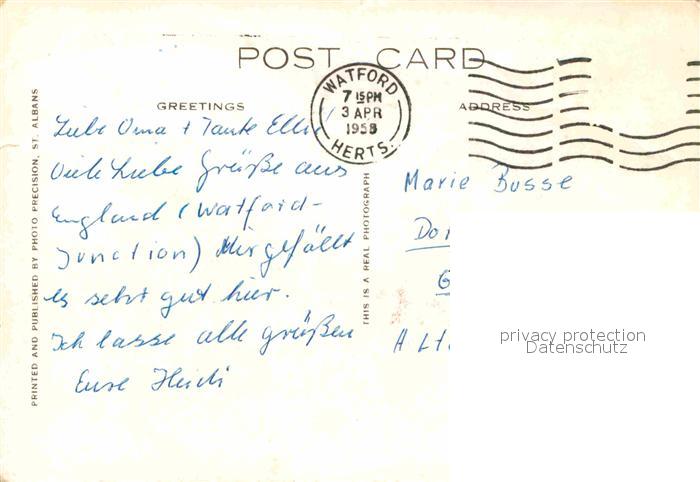 POST CARD
WATFORD
7 15 PM
3 APR
1958
HERTS.
GREETINGS
ADDRESS
Liebe Oma + Tante Elli!
Viele Liebe Grüße aus
England (Watford-
Junction) Mir gefällt
es sehr gut hier.
Ich lasse alle grüßen
Eure Heidi
PRINTED AND PUBLISHED BY PHOTO PRECISION, ST. ALBANS
THIS IS A REAL PHOTOGRAPH
Marie Busse
privacy protection
Datenschutz